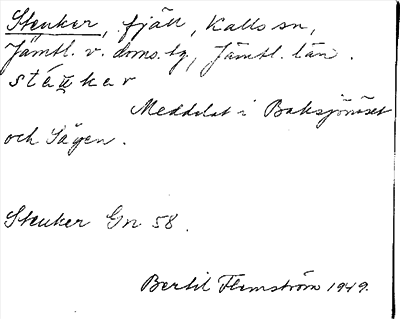 Steuker, fjäll, Kalls sn,
Jämtl. v. doms. tg, Jämtl. län.
stäuker
Meddelat i Baksjönäset
och Sågen.
Steuker Gn 58.
Bertil Flemström 1949.